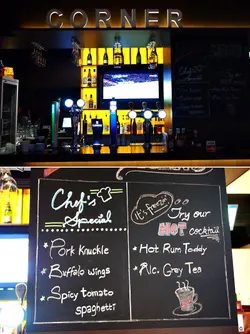 CORNER
Chef's
Special
* Pork Knuckle
* Buffalo wings
* Spicy tomato
spaghetti
It's freezin'
Try our
HOT cocktail
* Hot Rum Toddy
* Alc. Grey Tea